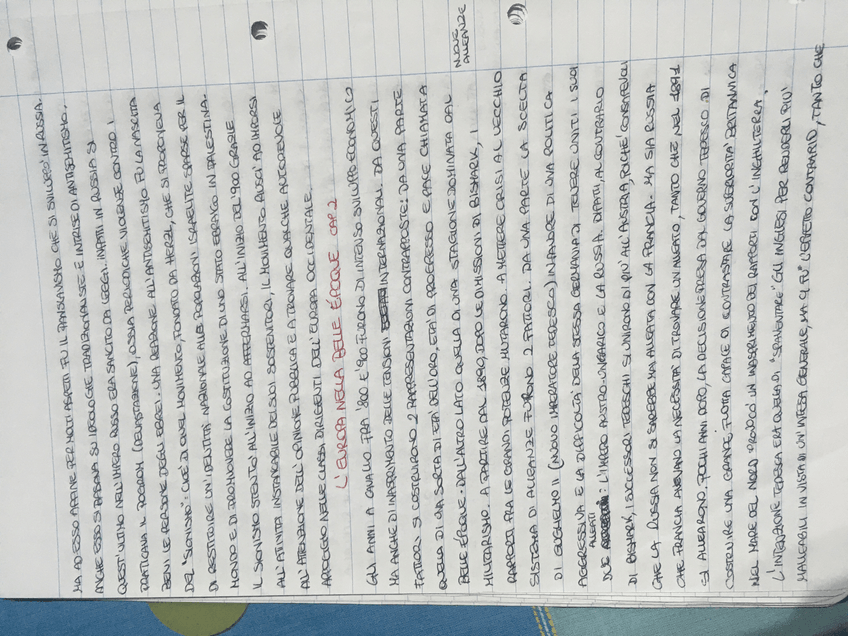 MA AD ESSO AFFINE PER MOLTI ASPETTI FU IL PANSLAVISMO CHE SI SVILUPPO' IN RUSSIA.
ANCHE ESSO SI BASAVA SU IDEOLOGIE TRADIZIONALISTE E INTRISE DI ANTISEMITISMO.
QUEST'ULTIMO NELL'IMPERO RUSSO ERA SANCITO DA LEGGI. INFATTI IN RUSSIA SI
PRATICAVA IL POGROM (DEVASTAZIONE), OSSIA PERIODICHE VIOLENZE CONTRO I
BENI E LE PERSONE DEGLI EBREI. UNA REAZIONE ALL'ANTISEMITISMO FU LA NASCITA
DEL "SIONISMO": CIOE' DI QUEL MOVIMENTO, FONDATO DA HERZL, CHE SI PROPONEVA
DI RESTITUIRE UN'IDENTITA' NAZIONALE ALLE POPOLAZIONI ISRAELITE SPARSE PER IL
MONDO E DI PROMUOVERE LA COSTITUZIONE DI UNO STATO EBRAICO IN PALESTINA.
IL SIONISMO STENTO' ALL'INIZIO AD AFFERMARSI. ALL'INIZIO DEL '900 GRAZIE
ALL'ATTIVITA' INSTANCABILE DEI SUOI SOSTENITORI, IL MOVIMENTO RIUSCI' AD IMPORSI
ALL'ATTENZIONE DELL'OPINIONE PUBBLICA E A TROVARE QUALCHE AUTOREVOLE
APPOGGIO NELLE CLASSI DIRIGENTI DELL'EUROPA OCCIDENTALE.
L'EUROPA NELLA BELLE ÉPOQUE CAP.2
GLI ANNI A CAVALLO FRA '800 E '900 FURONO DI INTENSO SVILUPPO ECONOMICO
MA ANCHE DI INASPRIMENTO DELLE TENSIONI INTERNAZIONALI. DA QUESTI
FATTORI SI COSTRUIRONO 2 RAPPRESENTAZIONI CONTRAPPOSTE: DA UNA PARTE
QUELLA DI UNA SORTA DI ETA' DELL'ORO, ETA' DI PROGRESSO E PACE CHIAMATA
BELLE ÉPOQUE. DALL'ALTRO LATO QUELLA DI UNA STAGIONE DOMINATA DAL
MILITARISMO. A PARTIRE DAL 1890, DOPO LE DIMISSIONI DI BISMARK, I
NUOVE
ALLEANZE
RAPPORTI FRA LE GRANDI POTENZE MUTARONO. A METTERE CRISI AL VECCHIO
SISTEMA DI ALLEANZE FURONO 2 FATTORI. DA UNA PARTE LA SCELTA
DI GUGLIELMO II (NUOVO IMPERATORE TEDESCO) IN FAVORE DI UNA POLITICA
AGGRESSIVA E LA DIFFICOLTA' DELLA STESSA GERMANIA DI TENERE UNITI I SUOI
DUE ALLEATI: L'IMPERO AUSTRO-UNGARICO E LA RUSSIA. DIFATTI, AL CONTRARIO
DI BISMARK, I SUCCESSORI TEDESCHI SI UNIRONO DI PIU' ALL'AUSTRIA, POICHE' CONSAPEVOLI
CHE LA RUSSIA NON SI SAREBBE MAI ALLEATA CON LA FRANCIA. MA SIA RUSSIA
CHE FRANCIA AVEVANO LA NECESSITA' DI TROVARE UN ALLEATO, TANTO CHE NEL 1891
SI ALLEARONO. POCHI ANNI DOPO, LA DECISIONE PRESA DAL GOVERNO TEDESCO DI
COSTRUIRE UNA GRANDE FLOTTA CAPACE DI CONTRASTARE LA SUPERIORITA' BRITANNICA
NEL MARE DEL NORD PROVOCO' UN INASPRIMENTO DEI RAPPORTI CON L'INGHILTERRA.
L'INTENZIONE TEDESCA ERA QUELLA DI "SPAVENTARE" GLI INGLESI PER RENDERLI PIU'
MALLEABILI IN VISTA DI UN'INTESA GENERALE, MA CI FU' L'EFFETTO CONTRARIO, TANTO CHE